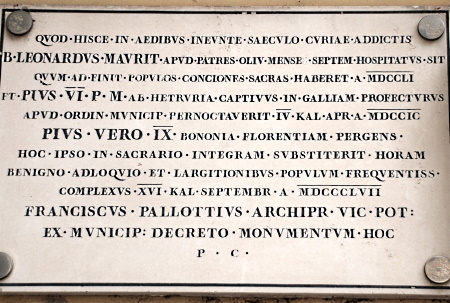 QVOD·HISCE·IN·AEDIBVS·INEVNTE·SAECVLO·CVRIAE·ADDICTIS
B·LEONARDVS·MAVRIT·APVD·PATRES·OLIV·MENSE·SEPTEM·HOSPITATVS·SIT
QVVM·AD·FINIT·POPVLOS·CONCIONES·SACRAS·HABERET·A·MDCCLI
ET·PIVS·VI·P·M·AB·HETRVRIA·CAPTIVVS·IN·GALLIAM·PROFECTVRVS
APVD·ORDIN·MVNICIP·PERNOCTAVERIT·IV·KAL·APR·A·MDCCIC
PIVS·VERO·IX·BONONIA·FLORENTIAM·PERGENS·
HOC·IPSO·IN·SACRARIO·INTEGRAM·SVBSTITERIT·HORAM
BENIGNO·ADLOQVIO·ET·LARGITIONIBVS·POPVLVM·FREQVENTISS·
COMPLEXVS·XVI·KAL·SEPTEMBR·A·MDCCCLVII
FRANCISCVS·PALLOTTIVS·ARCHIPR·VIC·POT:
EX·MVNICIP:DECRETO·MONVMENTVM·HOC
P·C·